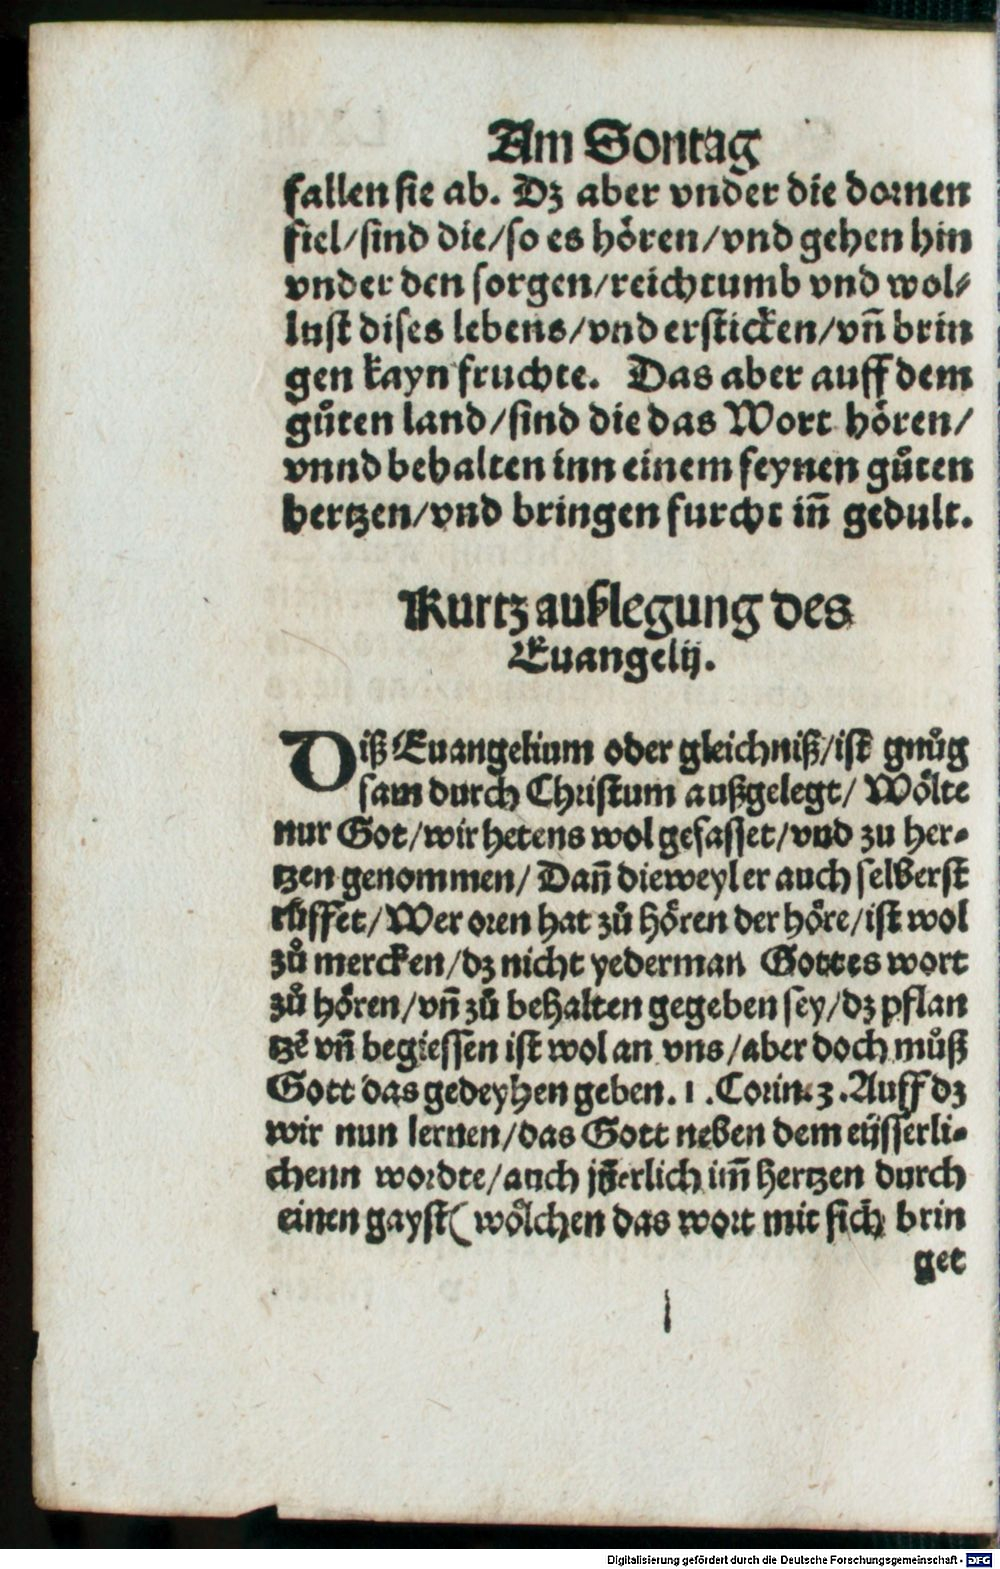 Am Sontag
fallen sie ab. Dz aber vnder die dornen
fiel/sind die/so es hören/vnd gehen hin
vnder den sorgen/reichtumb vnd wol⸗
lust dises lebens/vnd ersticken/vñ brin
gen kayn fruchte. Das aber auff dem
gůten land/sind die das Wort hören/
vnnd behalten inn einem feynen gůten
hertzen/vnd bringen furcht iñ gedult.
Kurtz außlegung des
Euangelij.
Diß Euangelium oder gleichniß/ist gnůg
sam durch Christum außgelegt/ Wölte
nur Got/wir hetens wol gefasset/vnd zu her⸗
tzen genommen/ Dañ dieweyl er auch selberst
růffet/Wer oren hat zů hören der höre/ist wol
zů mercken/dz nicht yederman Gottes wort
zů hören/vñ zů behalten gegeben sey/dz pflan
tzē vñ begiessen ist wol an vns/aber doch můß
Gott das gedeyhen geben. 1. Corin. 3. Auff dz
wir nun lernen/das Gott neben dem eüsserli⸗
chenn wordte/auch jñerlich im̃ hertzen durch
einen gayst( wölchen das wort mit sich brin
get
Digitalisierung gefördert durch die Deutsche Forschungsgemeinschaft - DFG